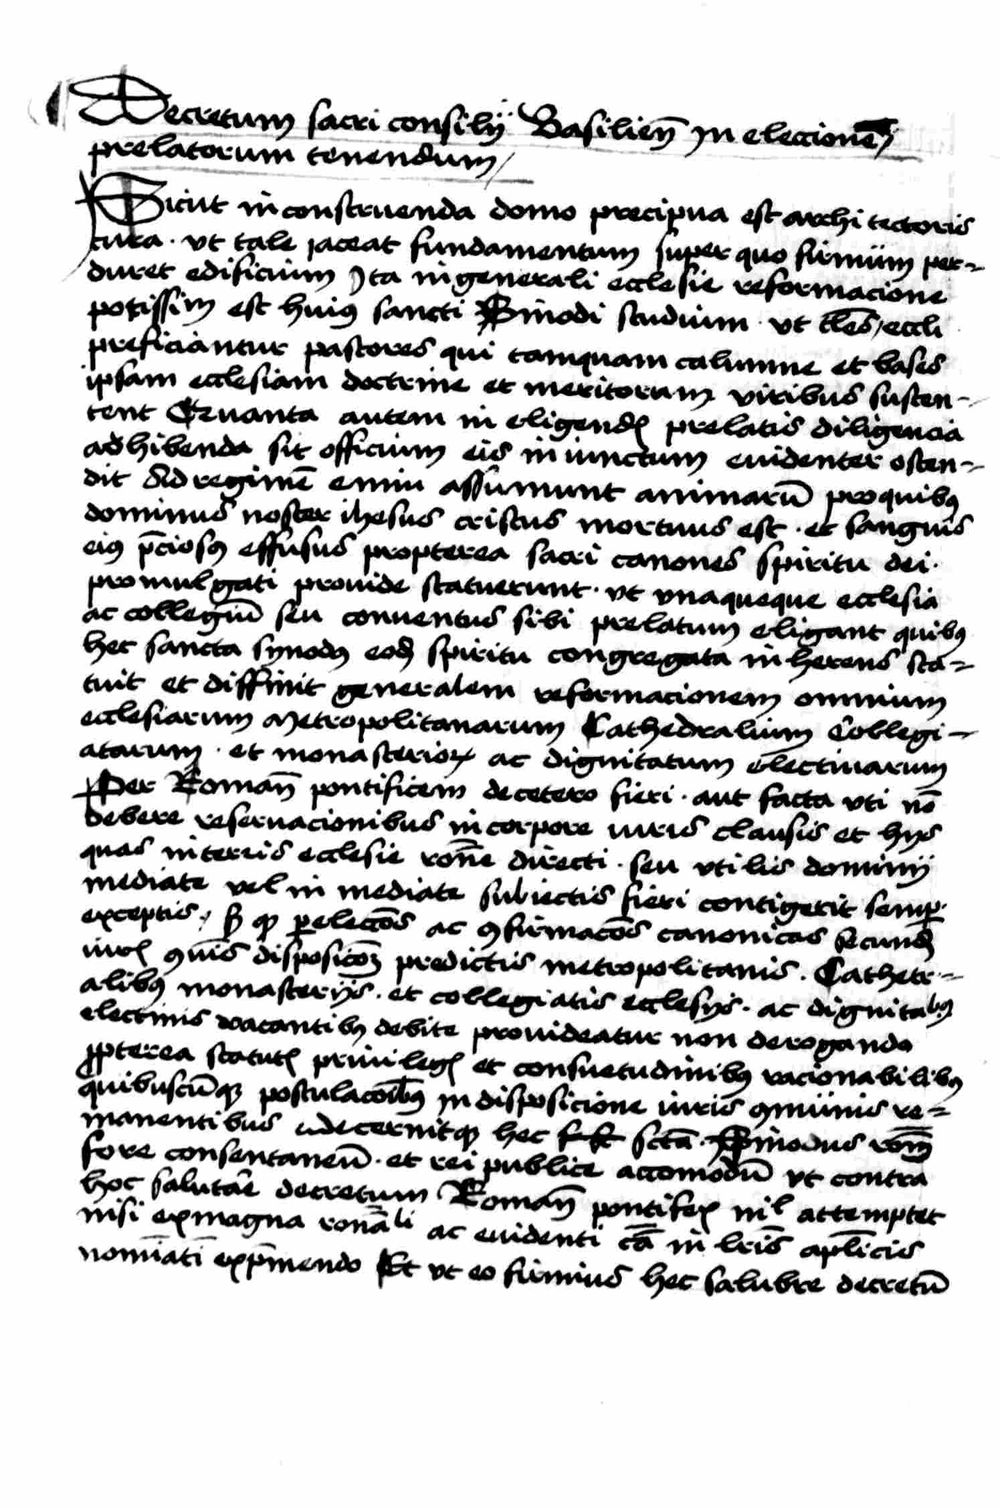 Decretum sacri consilij Basilien̄ In eleccione
prelatorum tenendum
Sicut in construenda domo precipua est architectoris
cura · ut tale iaceat fundamentum super quo firmum per-
duret edificium Ita in generali ecclesie reformacione
potissim est huius sancti Sinodi studium · ut ecclī
preficiantur pastores qui tamquam columne et bases
ipsam ecclesiam doctrine et meritorum viribus susten-
tent Quanta autem in eligend prelatis diligencia
adhibenda sit officium eis iniunctum euidenter osten-
dit Ad regimē enim assumunt animarū pro quibus
dominus noster ihesus cristus mortuus est · et sanguis
eius p̄ciosus effusus propterea sacri canones spiritu dei ·
promulgati prouide statuerunt · ut vnaqueque ecclesia
ac collegiū seu conuentus sibi prelatum eligant quibus
hec sancta synodus eod̄ spiritu congregata inherens sta-
tuit et diffinit generalem reseruacionem omnium
ecclesiarum Metropolitanarum Cathedralium Collegi-
atarum · et monasterioꝝ ac dignitatum electiuarum
Per Roman̄ pontificem de cetero fieri · aut facta vti nō
debere reseruacionibus in corpore iuris clausis et hijs
quas in terris ecclesie rōne directi · seu vtilis dominij
mediate vel in mediate subiectis fieri contigerit semp̄
exceptis / sꝫ qꝫ per elecco̅s ac ꝯfirmaco̅s canonicas secund̄
iur ꝯu̅is disposico̅ꝫ predictis metropolitanis · Catheter-
alibus monasterijs · et collegiatis ecclesijs · ac dignitabus
electiuis vacantibus debite prouideatur non derogando
ꝓpterea statut priuileg et consuetudinibus racionabilibus
quibuscūqꝫ postulaco̅ibus In disposicione iuris ꝯmunis re-
manentibus decernitqꝫ hec sctā · Sinodus rōni
fore consentaneū · et rei publice accomodū vt contra
hoc salutare decretum Roman̄ pontifex nil attemptet
nisi ex magna ronāli ac euidenti cā in lrīs aplicis
nominati exp̄mendo Et vt eo firmius hec salubre decretū